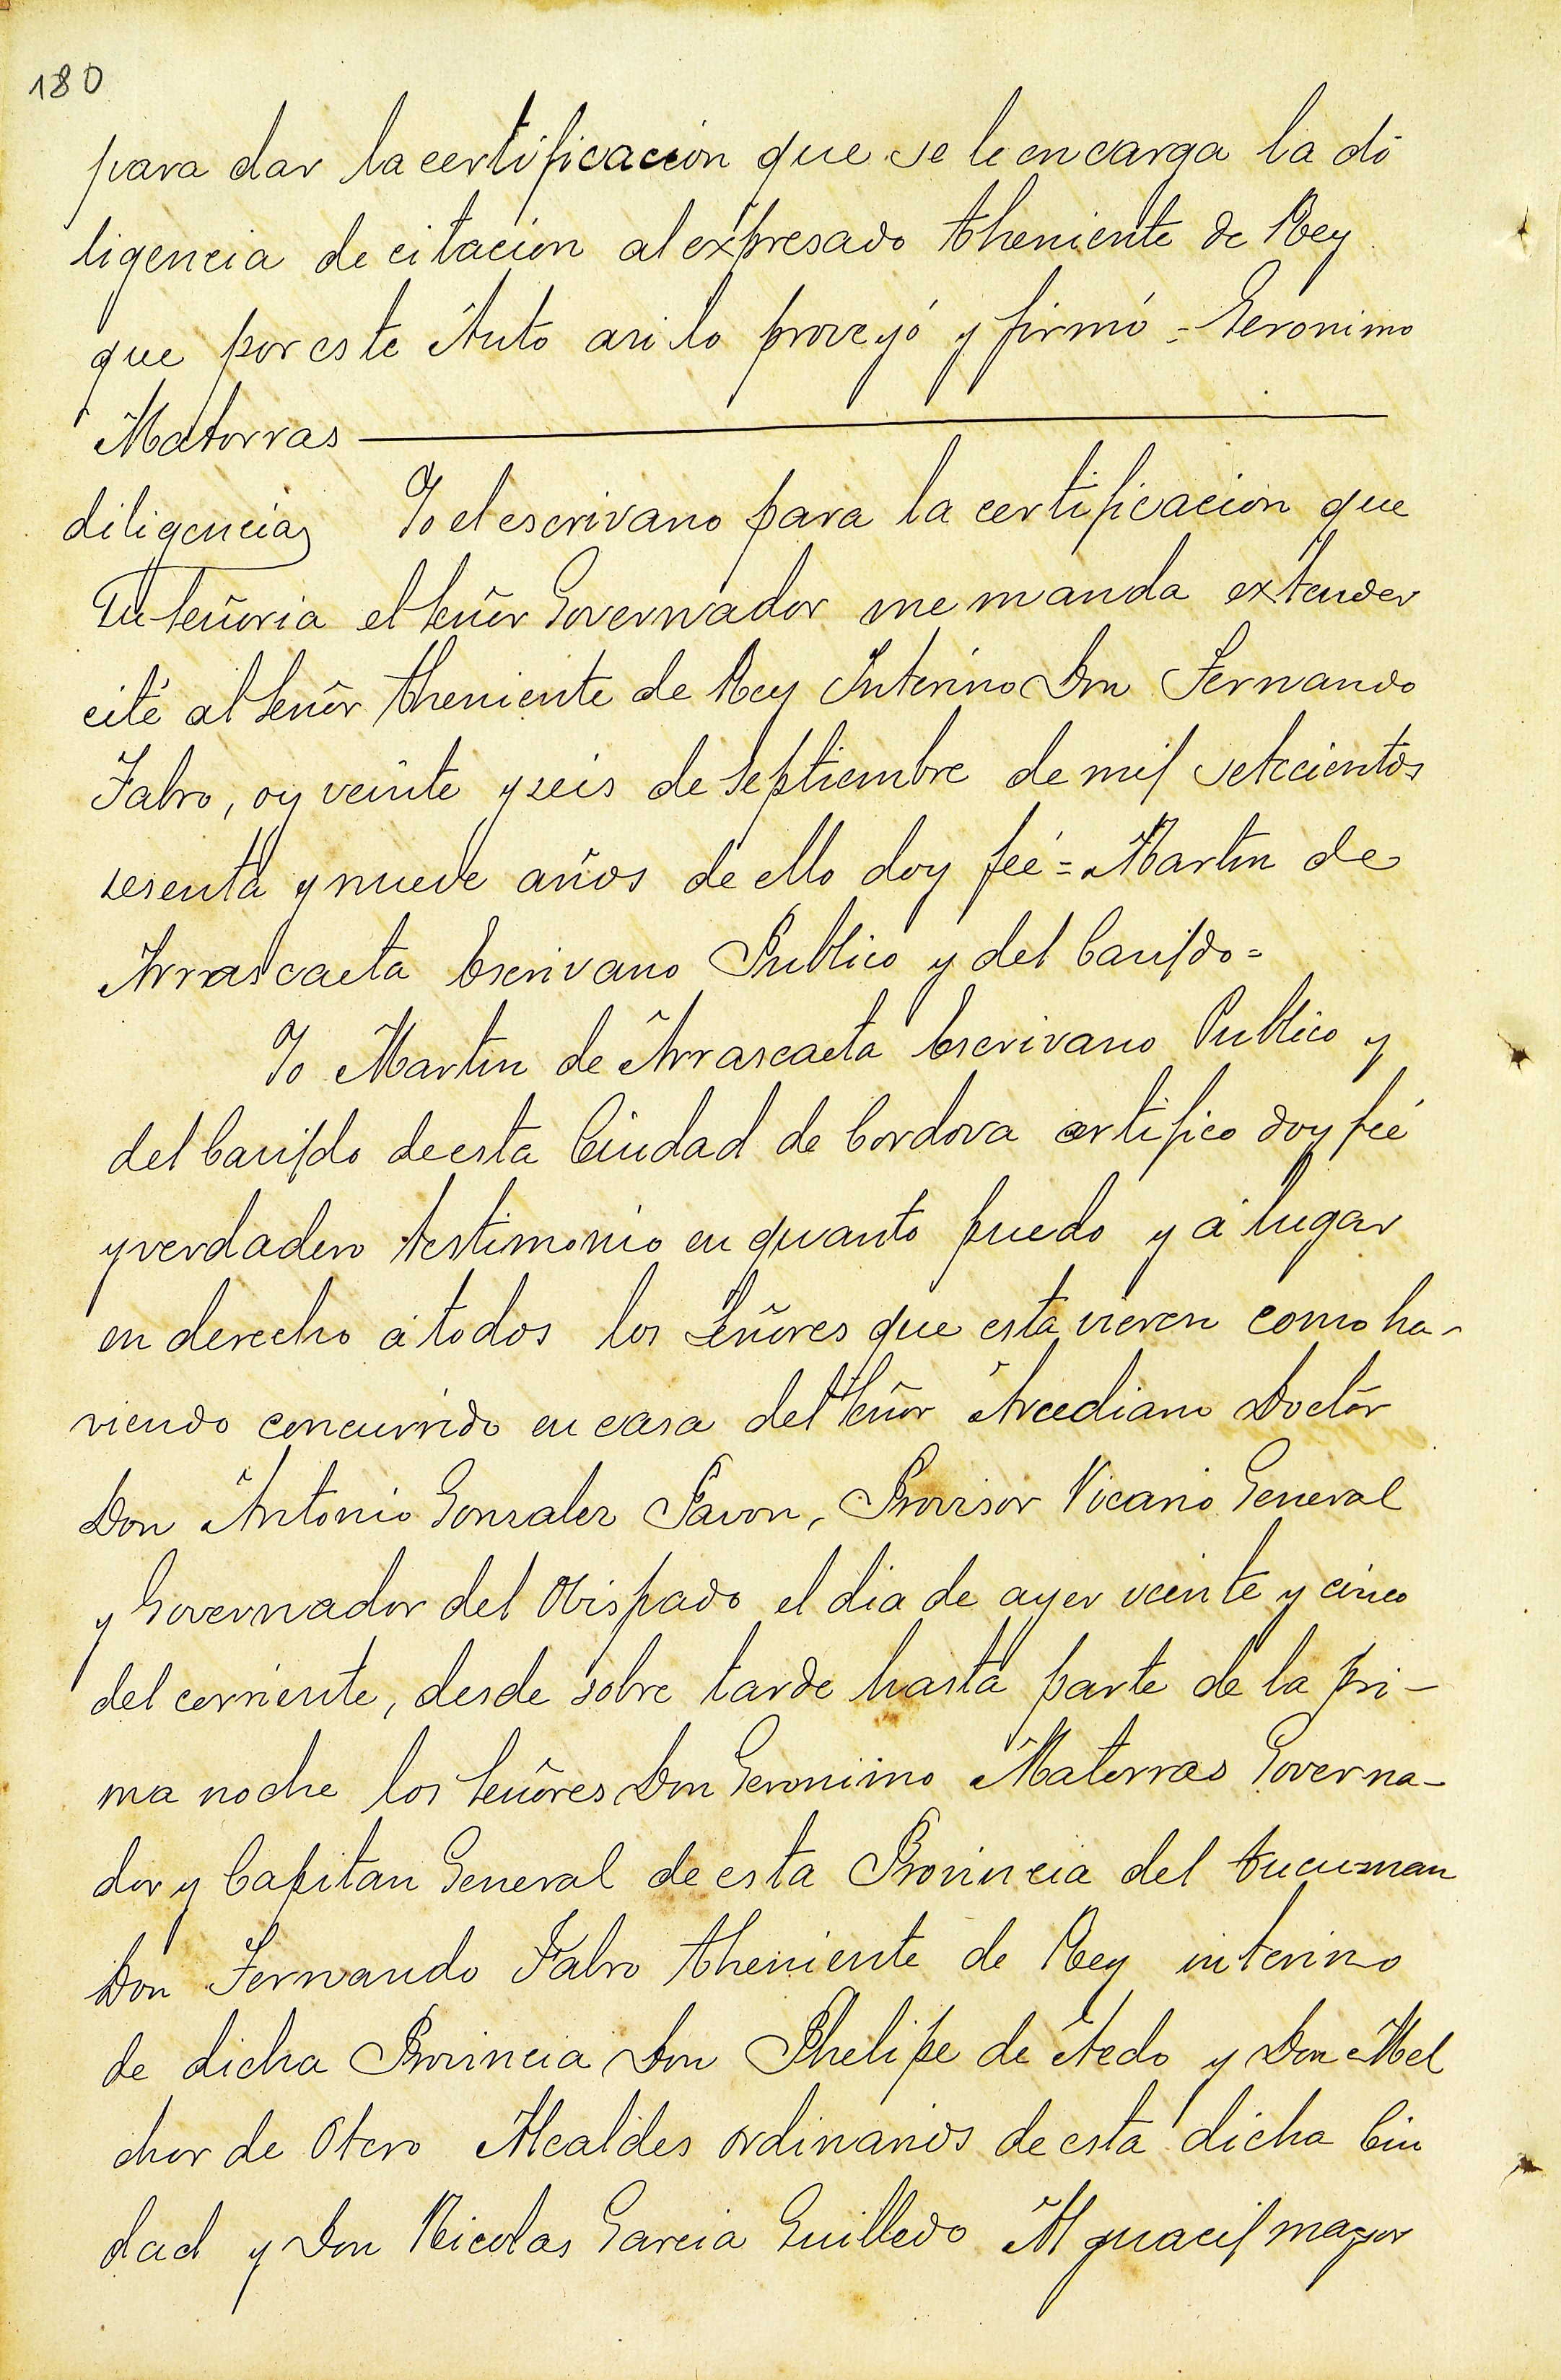 180
para dar la certificacion que se le encarga la di
ligencia de citacion al expresado theniente de Rey
que por este Auto asi lo proveyó y firmó = Geronimo
Matorras
diligencia Yo el escrivano para la certificacion que
Su Señoria el Señor Governador me manda extender
cité al Señor theniente de Rey Interino Don Fernando
Fabro, oy veinte y seis de Septiembre de mil setecientos
sesenta y nueve años de ello doy feé = Martin de
Arrascaeta Escrivano Publico y del Cavildo =
Yo Martin de Arrascaeta Escrivano Publico y
del Cavildo de esta Ciudad de Cordova certifico doy feé
y verdadero testimonio en quanto puedo y á lugar
en derecho á todos los Señores que esta vieren como ha-
viendo concurrido en casa del Señor Arcediano Doctor
Don Antonio Gonzalez Pavon, Provisor Vicario General
y Governador del Obispado el dia de ayer veinte y cinco
del corriente, desde sobre tarde hasta parte de la pri-
ma noche los Señores Don Geronimo Matorras Governa-
dor y Capitan General de esta Provincia del tucuman
Don Fernando Fabro theniente de Rey interino
de dicha Provincia Don Phelipe de Aedo y Don Mel
chor de Otero Alcaldes ordinarios de esta dicha Ciu
dad y Don Nicolas Garcia Guilledo Alguacil mayor